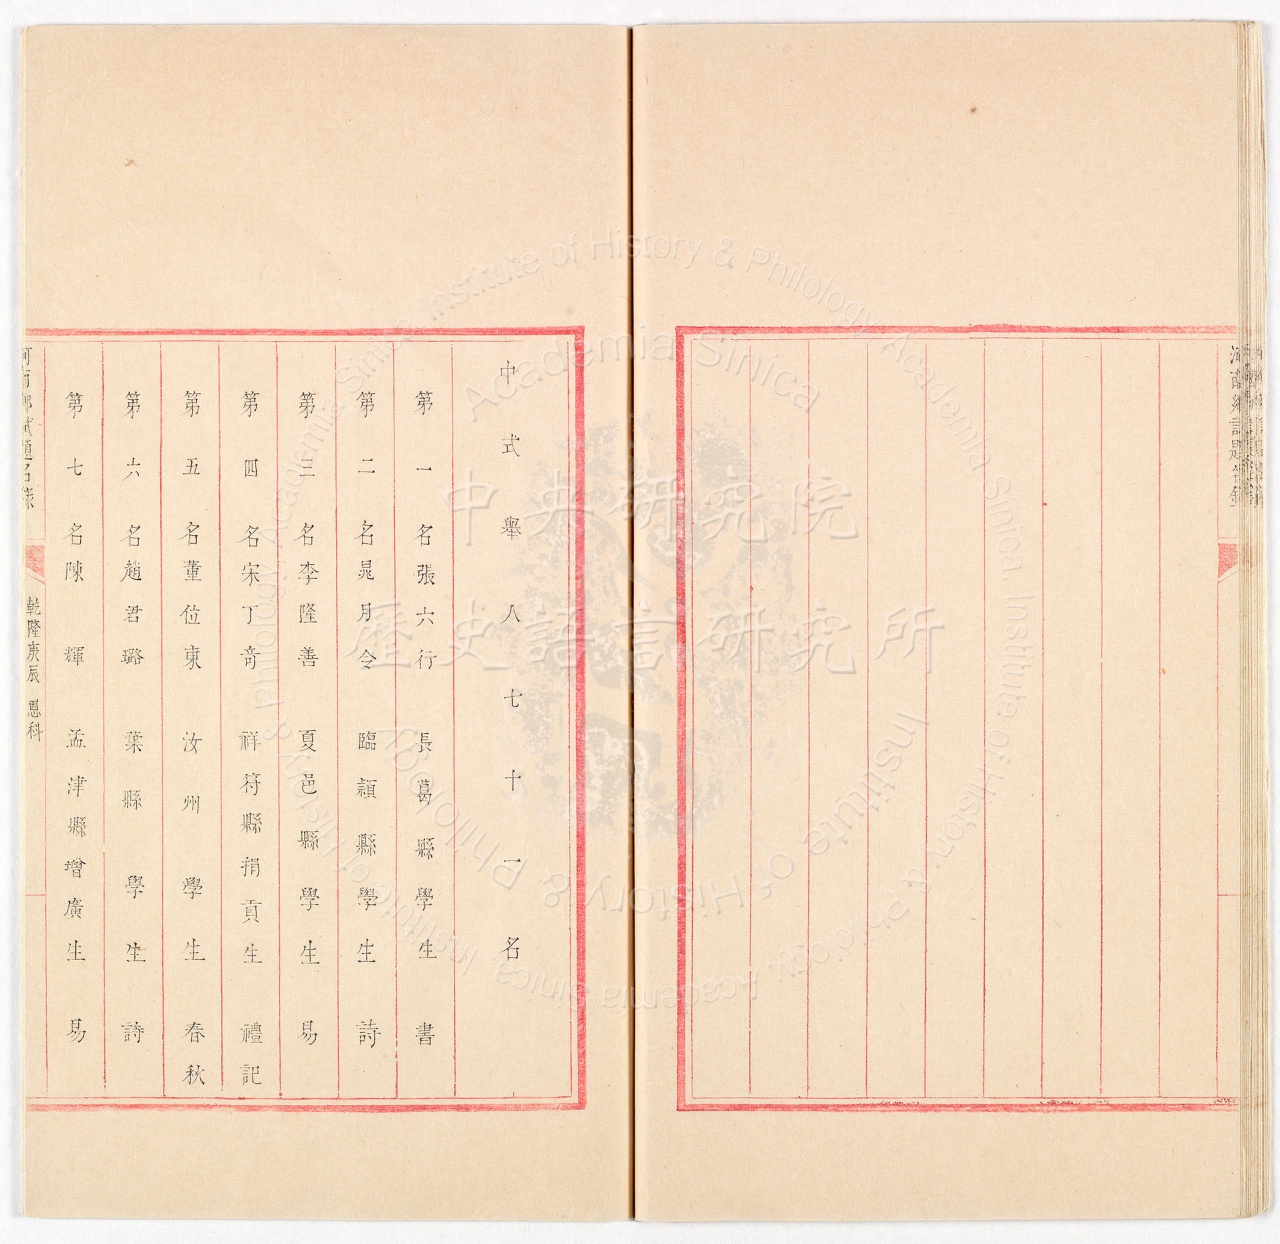 中式舉人七十一名
第一名張六行 長葛縣學生 書
第二名晁月令 臨潁縣學生 詩
第三名李隆善 夏邑縣學生 易
第四名宋丁奇 祥符縣捐貢生 禮記
第五名董位東 汝州學生 春秋
第六名趙君璐 葉縣學生 詩
第七名陳輝 孟津縣增廣生 易
河南鄉試題名錄
乾隆庚辰恩科
河南鄉試題名錄
中央研究院
歷史語言研究所
Academia Sinica Institute of History & Philology